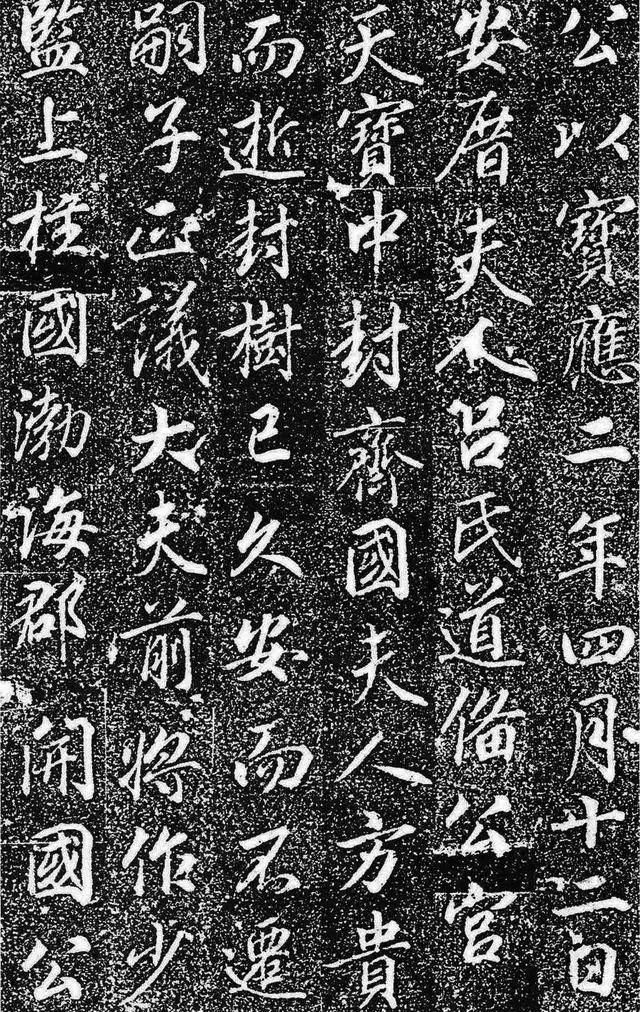 公以寶應二年四月十二日
安厝夫人呂氏道備公宮
天寶中封齊國夫人方貴
而逝封樹已久安而不遷
嗣子正議大夫前將作少
監上柱國渤海郡開國公